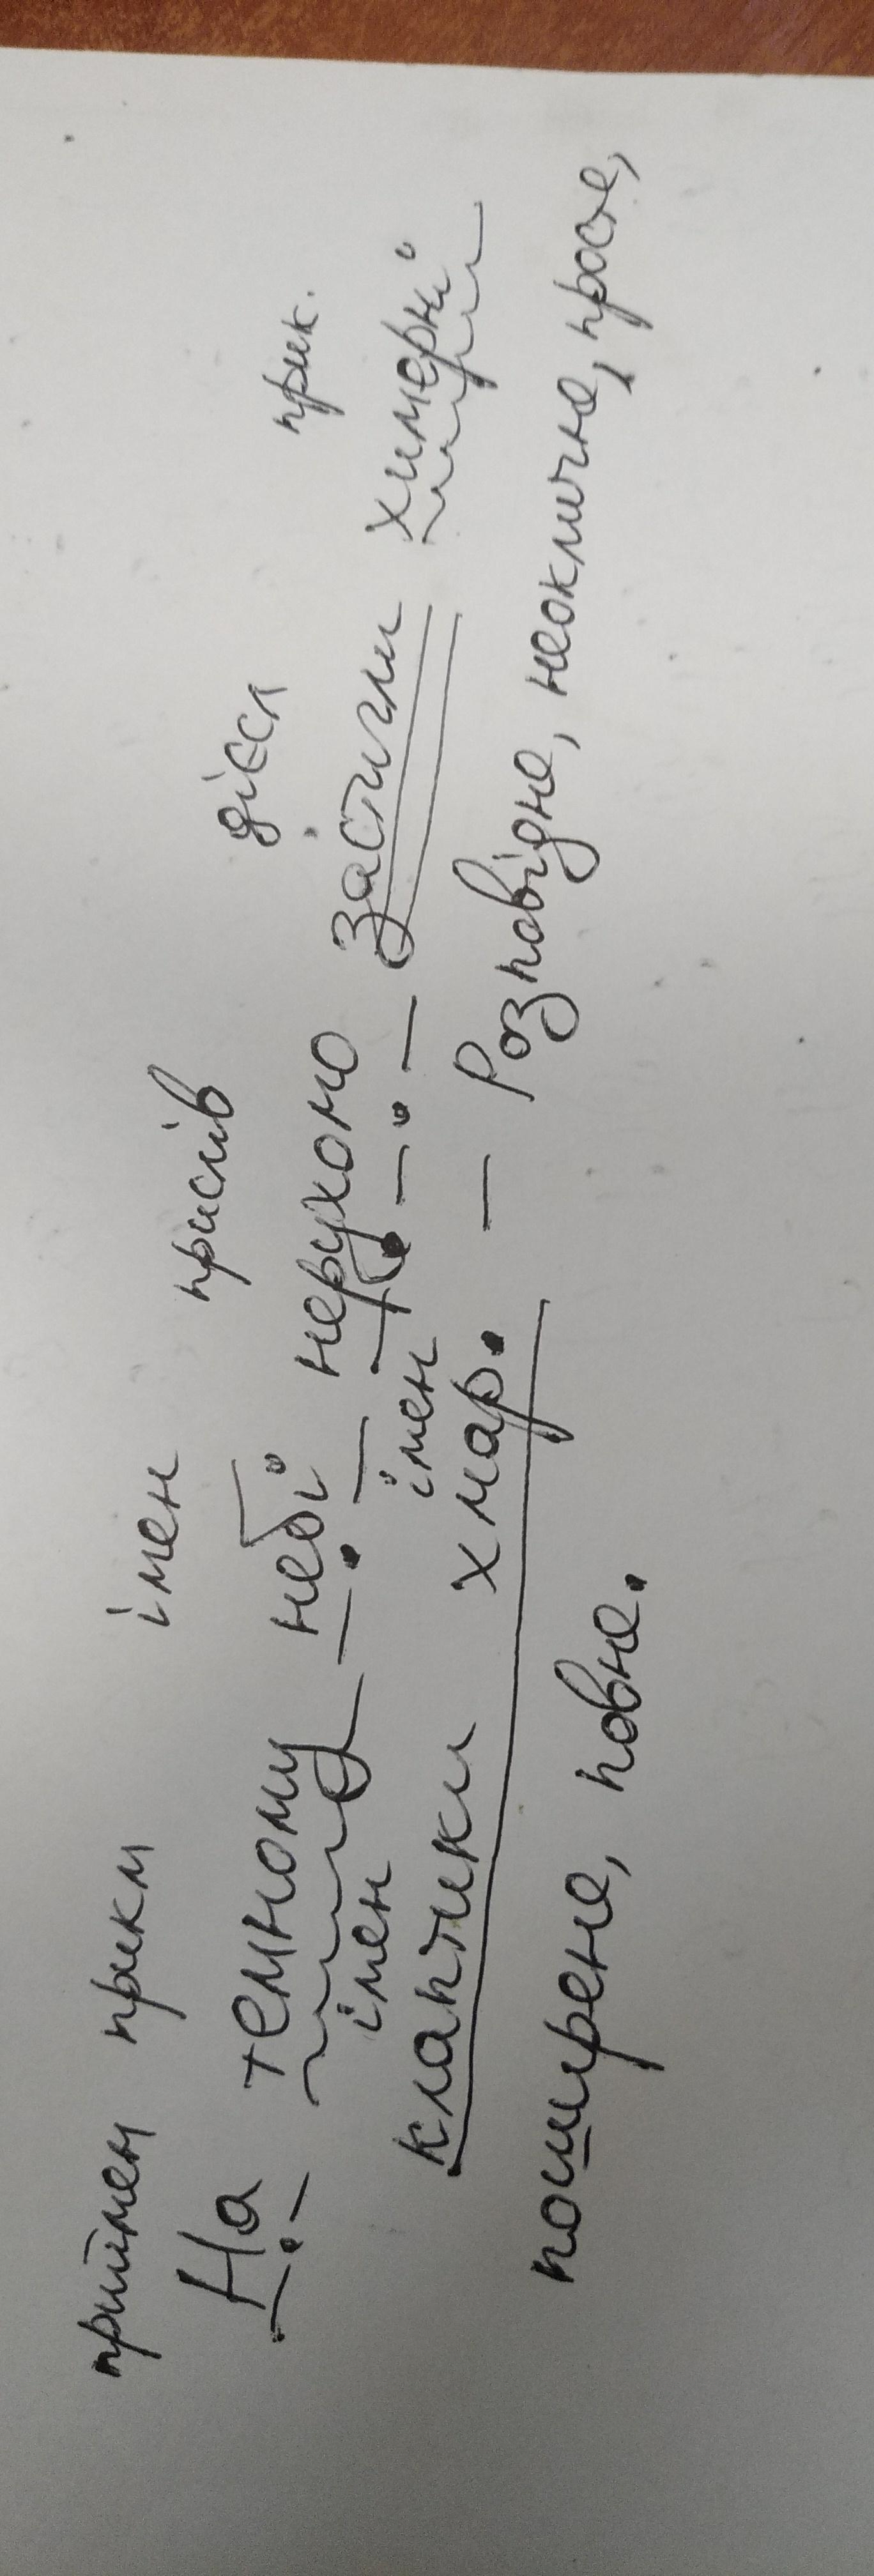 приймен прикм імен прислів дієсл прик.
На темному небі нерухомо застигли химерні
імен імен
клаптики хмар. — Розповідне, неоклично, просте,
поширене, повне.